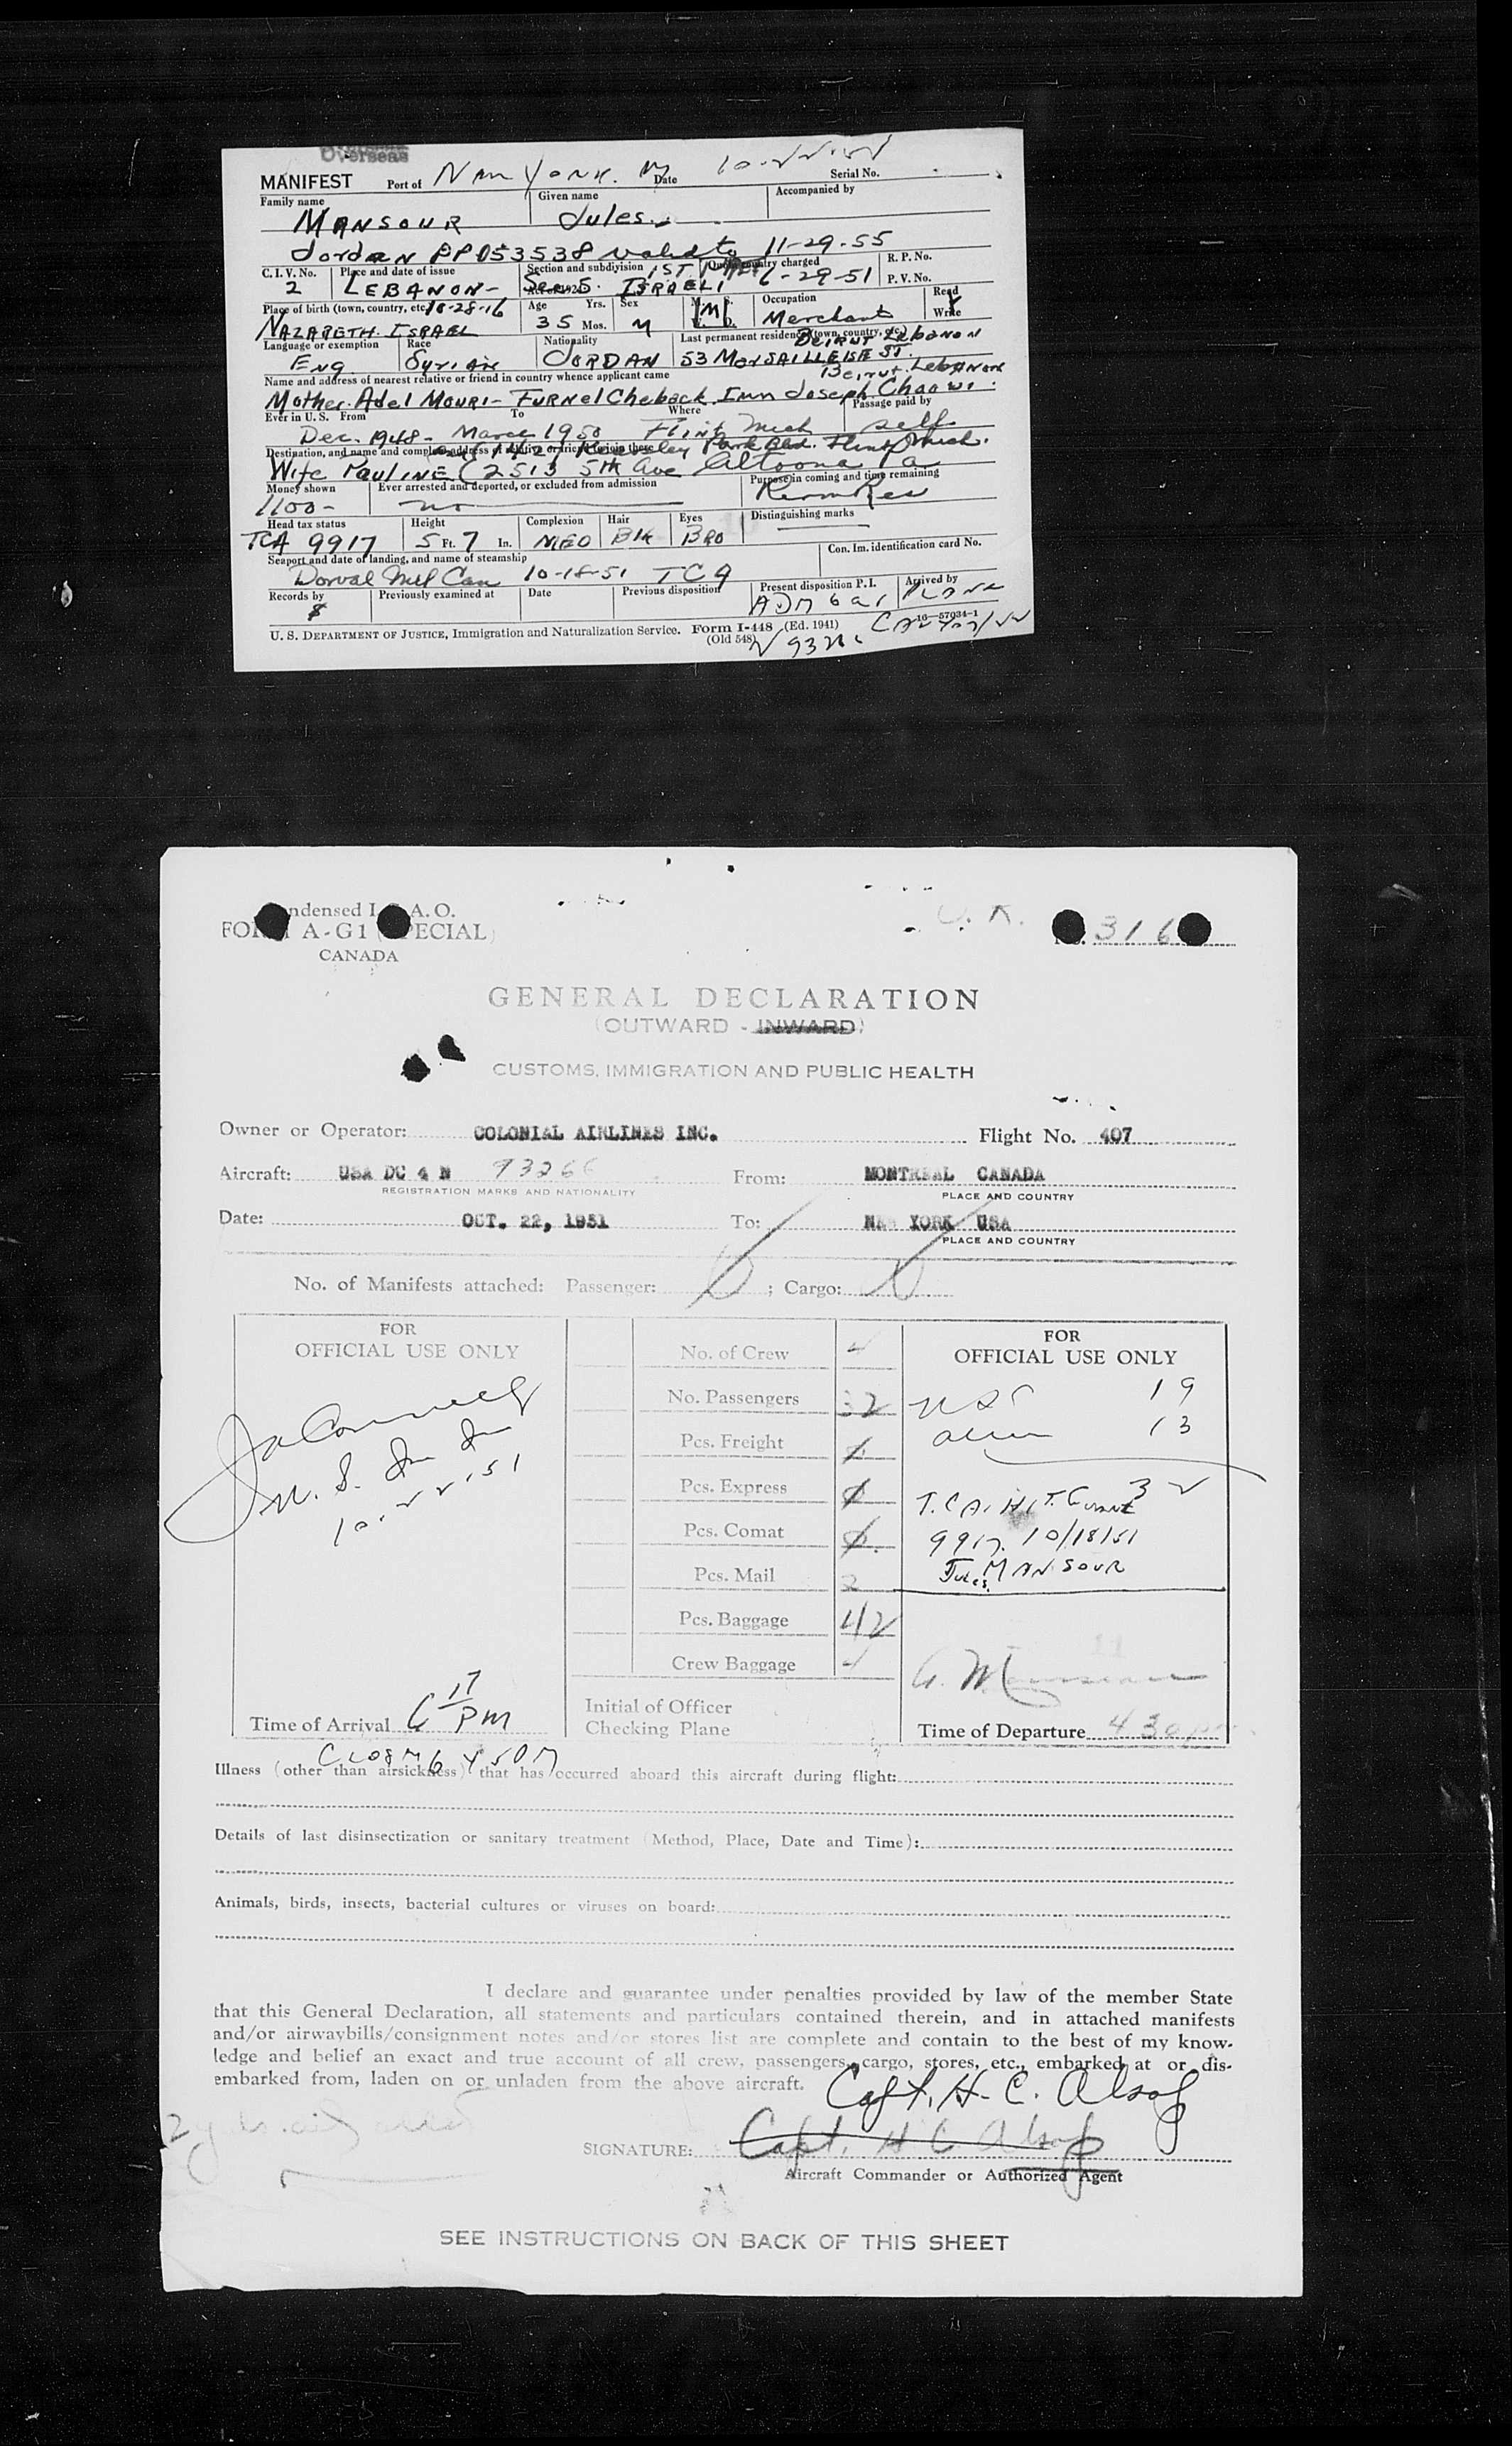 Overseas
MANIFEST Port of New York. NY Date 10-22-51 Serial No.
Family name Given name Accompanied by
MANSOUR Jules
Jordan PP 053538 valid to 11-29-55
C. I. V. No. Place and date of issue Section and subdivision Quota country charged R. P. No.
2 LEBANON- Sec. 5. 1ST ISRAELI 6-29-51 P. V. No.
Place of birth (town, country, etc.) 10-28-16 Age Yrs. Sex M. S. Occupation Read
NAZARETH. ISRAEL 35 Mos. M W. D. Merchant Write
Language or exemption Race Nationality Last permanent residence (town, country, etc.) Beirut Lebanon
Eng Syrian JORDAN 53 MarSAILLEISE ST.
Name and address of nearest relative or friend in country whence applicant came Beirut. Lebanon
Mother. Adel Mouri- Furnel Cheback. Imm Joseph. Chaowi.
Ever in U. S. From To Where Passage paid by
Dec. 1948- March 1950 Flint Mich self
Destination, and name and complete address of relative or friend to join there Park Blvd. Flint, Mich.
Wife PAULINE (2513 5th Ave Altoona Pa
Money shown Ever arrested and deported, or excluded from admission Purpose in coming and time remaining
1100- no Perm Res
Head tax status Height Complexion Hair Eyes Distinguishing marks
TCA 9917 5 Ft. 7 In. MED Blk BRO
Seaport and date of landing, and name of steamship Con. Im. identification card No.
Dorval Mtl Can 10-18-51 TCA
Records by Previously examined at Date Previous disposition Present disposition P. I. Arrived by
ADM PLANE
U. S. DEPARTMENT OF JUSTICE, Immigration and Naturalization Service. Form I-448 (Ed. 1941) 16—57034-1
(Old 548)
Condensed I.C.A.O. O.K.
FORM A-G1 (SPECIAL) No. 316
CANADA
GENERAL DECLARATION
(OUTWARD - INWARD)
CUSTOMS, IMMIGRATION AND PUBLIC HEALTH
Owner or Operator: COLONIAL AIRLINES INC. Flight No. 407
Aircraft: USA DC 4 N 93266 From: MONTREAL CANADA
REGISTRATION MARKS AND NATIONALITY PLACE AND COUNTRY
Date: OCT. 22, 1951 To: NEW YORK USA
PLACE AND COUNTRY
No. of Manifests attached: Passenger: 0 ; Cargo: 0
FOR OFFICIAL USE ONLY
No. of Crew 4
No. Passengers 32
Pcs. Freight 0
Pcs. Express 0
Pcs. Comat 0
Pcs. Mail 2
Pcs. Baggage 42
Crew Baggage 4
FOR OFFICIAL USE ONLY
USC 19
Alien 13
32
9917. 10/18/51
Jules MANSOUR
10-22-51
Initial of Officer
Checking Plane
Time of Arrival 6 17 PM
Time of Departure 4 30 pm
Illness (other than airsickness) that has occurred aboard this aircraft during flight:
Details of last disinsectization or sanitary treatment (Method, Place, Date and Time):
Animals, birds, insects, bacterial cultures or viruses on board:
I declare and guarantee under penalties provided by law of the member State
that this General Declaration, all statements and particulars contained therein, and in attached manifests
and/or airwaybills/consignment notes and/or stores list are complete and contain to the best of my know-
ledge and belief an exact and true account of all crew, passengers, cargo, stores, etc., embarked at or dis-
embarked from, laden on or unladen from the above aircraft.
Capt. H. C. Alsop
SIGNATURE: Capt. H C Alsop
Aircraft Commander or Authorized Agent
SEE INSTRUCTIONS ON BACK OF THIS SHEET